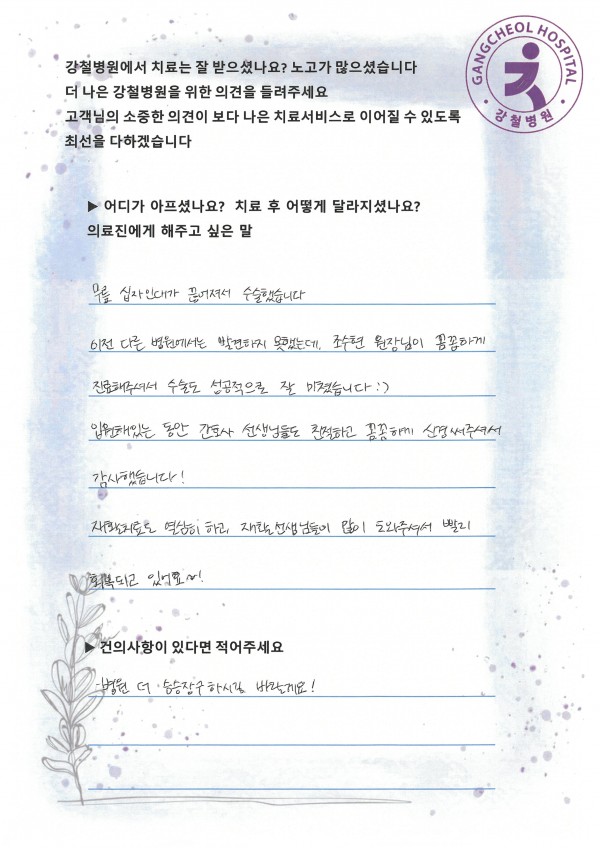 GANGCHEOL HOSPITAL
강철병원
강철병원에서 치료는 잘 받으셨나요? 노고가 많으셨습니다
더 나은 강철병원을 위한 의견을 들려주세요
고객님의 소중한 의견이 보다 나은 치료서비스로 이어질 수 있도록
최선을 다하겠습니다
▶ 어디가 아프셨나요? 치료 후 어떻게 달라지셨나요?
의료진에게 해주고 싶은 말
무릎 십자인대가 끊어져서 수술했습니다
이전 다른 병원에서는 발견하지 못했는데, 조수현 원장님이 꼼꼼하게
진료해주셔서 수술도 성공적으로 잘 마쳤습니다 :)
입원해있는 동안 간호사 선생님들도 친절하고 꼼꼼하게 신경써주셔서
감사했습니다!
재활치료도 열심히 하고, 재활선생님들이 많이 도와주셔서 빨리
회복되고 있어요~!
▶ 건의사항이 있다면 적어주세요
병원 더 승승장구하시길 바랄게요!